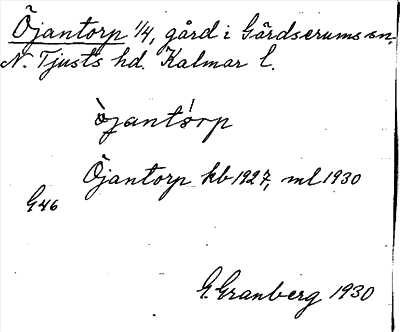 Öjantorp 1/4, gård i Gärdserums sn,
N. Tjusts hd. Kalmar l.
òjantórp
Öjantorp kb 1927, ml 1930
G46
G. Granberg 1930